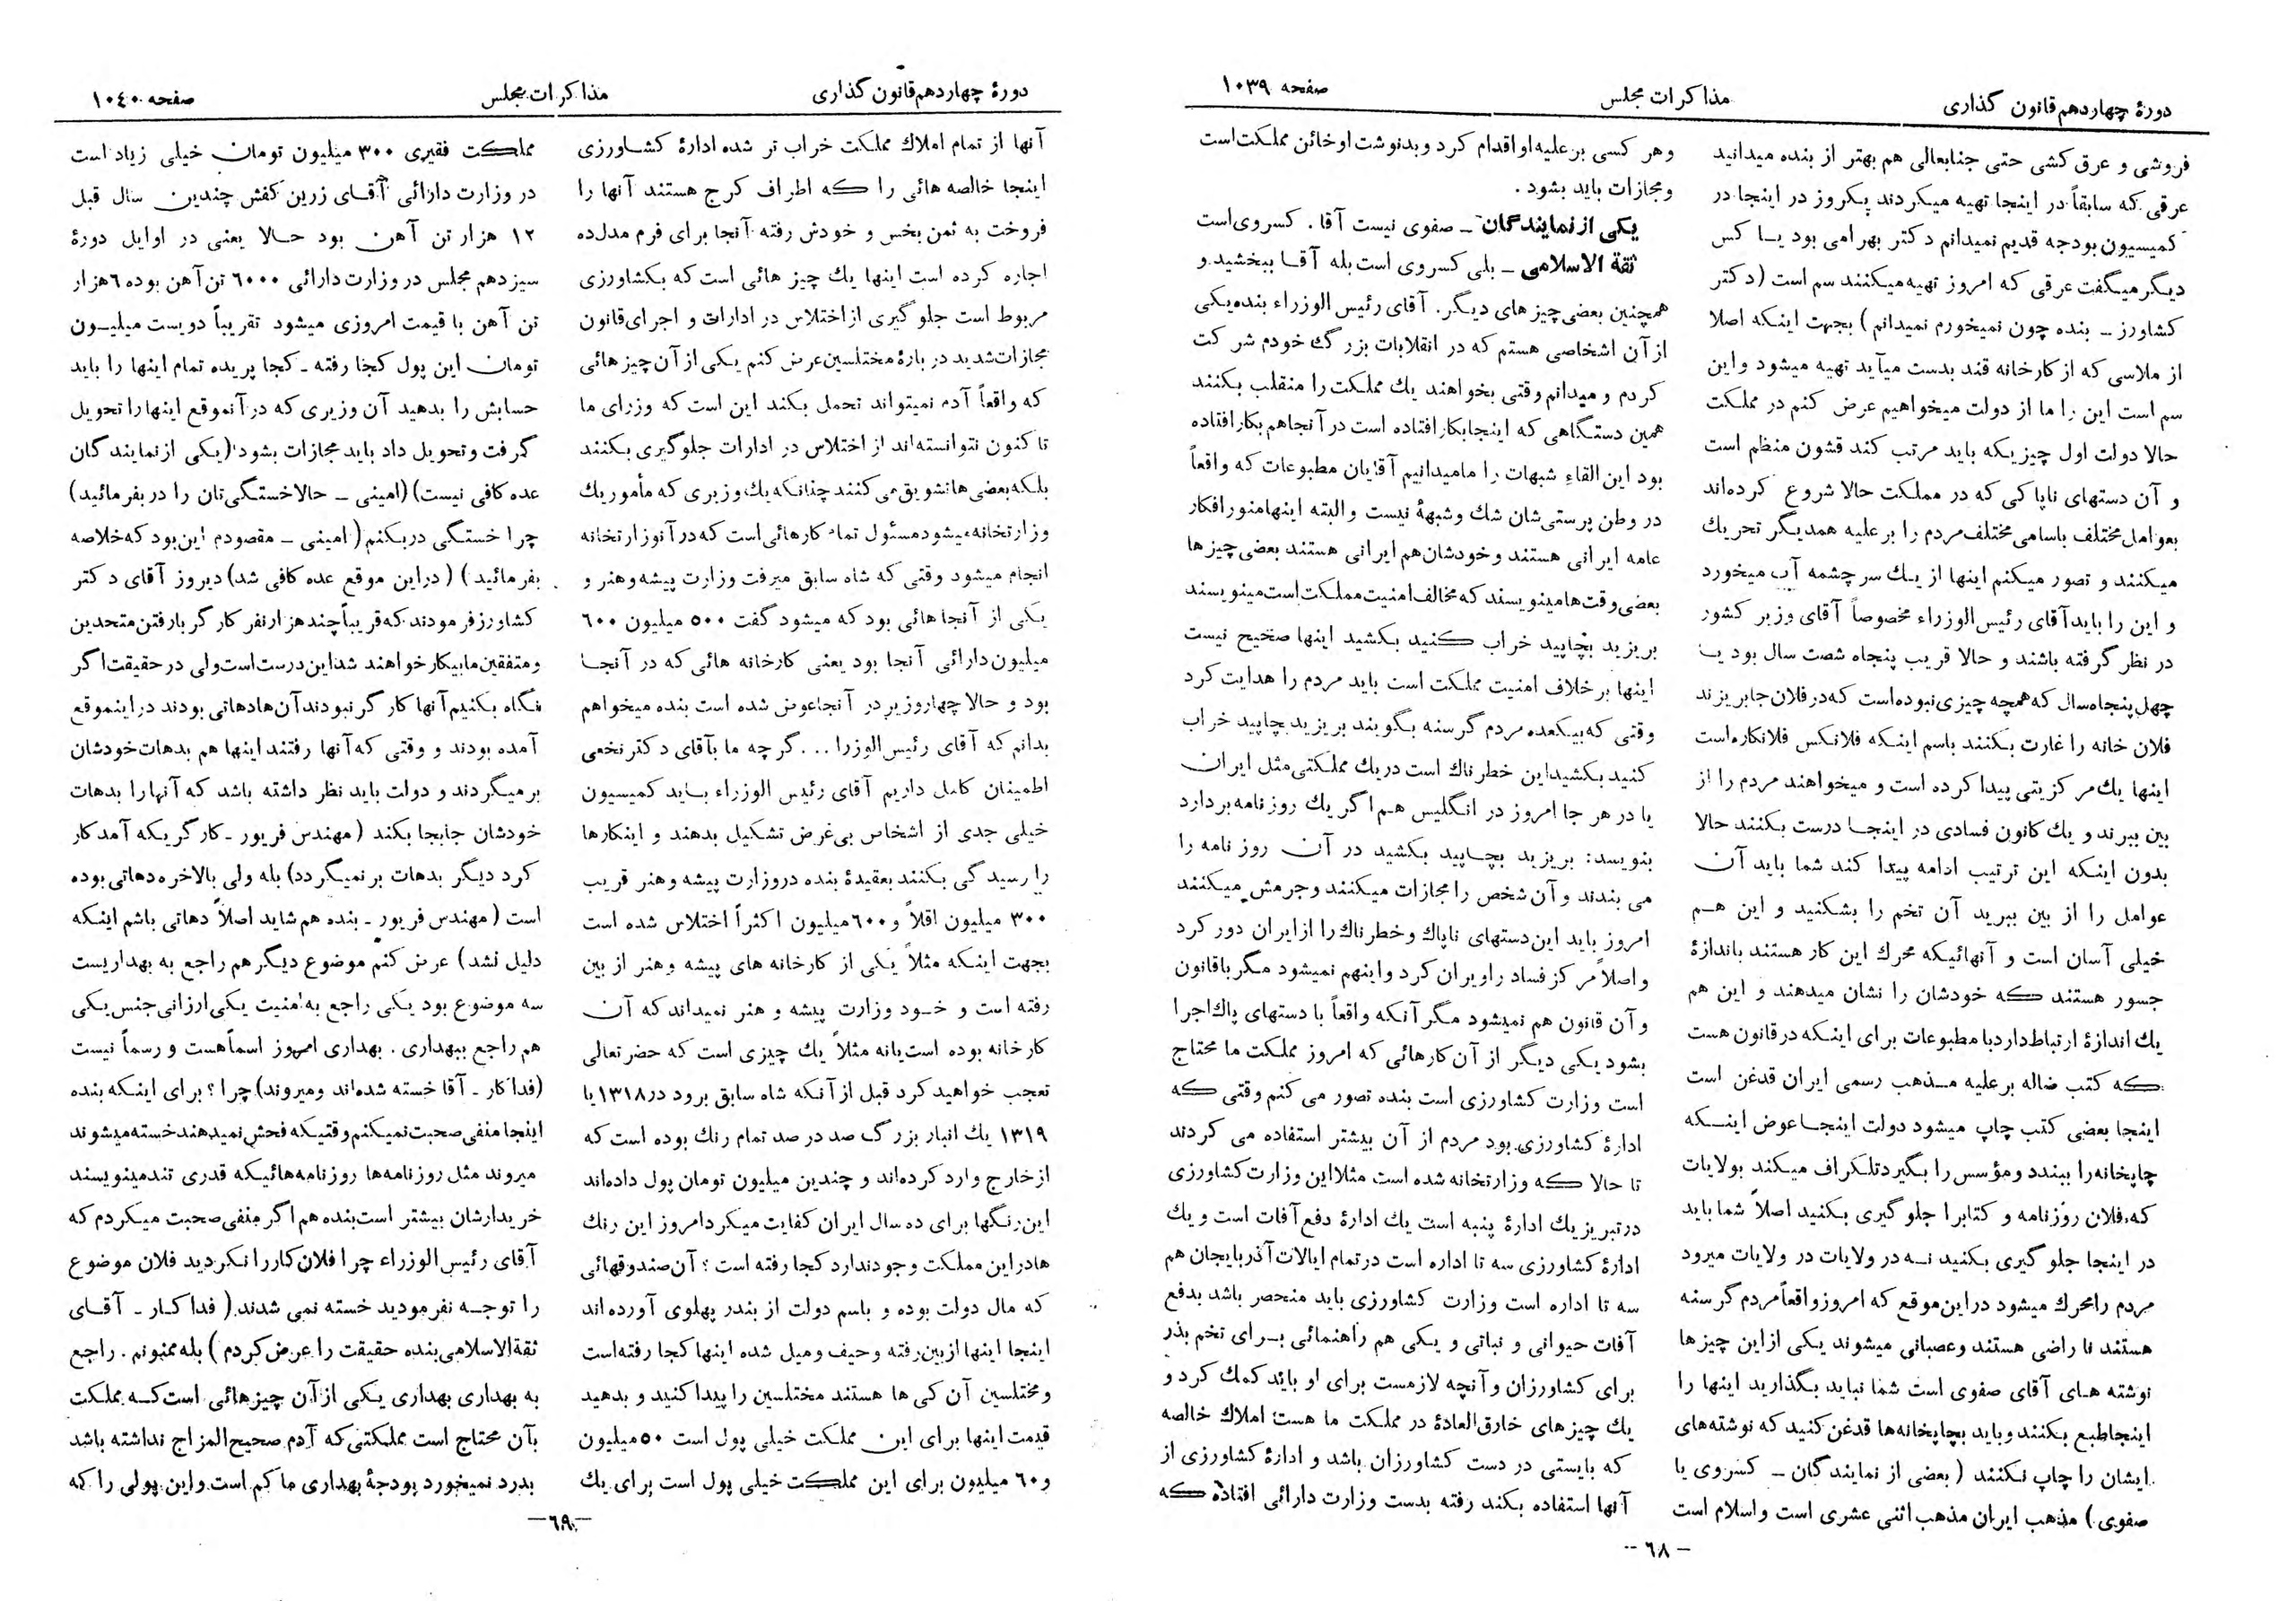 دورۀ چهاردهم قانون گذاری
مذاکرات مجلس
صفحه ۱۰۳۹
فروشی و عرق کشی حتی جنابعالی هم بهتر از بنده میدانید
عرقی که سابقاً در اینجا تهیه میکردند یکروز در اینجا در
کمیسیون بودجه قدیم نمیدانم دکتر بهرامی بود یا کس
دیگر میگفت عرقی که امروز تهیه میکنند سم است (دکتر
کشاورز ـ بنده چون نمیخورم نمیدانم) بجهت اینکه اصلا
از ملاسی که از کارخانه قند بدست میآید تهیه میشود و این
سم است این را ما از دولت میخواهیم عرض کنم در مملکت
حالا دولت اول چیزیکه باید مرتب کند قشون منظم است
و آن دستهای ناپاکی که در مملکت حالا شروع کرده‌اند
بعوامل مختلف باسامی مختلف مردم را بر علیه همدیگر تحریك
میکنند و تصور میکنم اینها از یك سر چشمه آب میخورد
و این را باید آقای رئیس الوزراء مخصوصاً آقای وزیر کشور
در نظر گرفته باشند و حالا قریب پنجاه شصت سال بود یا
چهل پنجاه سال که همچه چیزی نبوده است که در فلان جا بریزند
فلان خانه را غارت بکنند باسم اینکه فلانکس فلانکاره است
اینها یك مرکزیتی پیدا کرده است و میخواهند مردم را از
بین ببرند و یك کانون فسادی در اینجا درست بکنند حالا
بدون اینکه این ترتیب ادامه پیدا کند شما باید آن
عوامل را از بین ببرید آن تخم را بشکنید و این هم
خیلی آسان است و آنهائیکه محرك این کار هستند باندازۀ
جسور هستند که خودشان را نشان میدهند و این هم
یك اندازۀ ارتباط دارد با مطبوعات برای اینکه در قانون هست
که کتب ضاله بر علیه مذهب رسمی ایران قدغن است
اینجا بعضی کتب چاپ میشود دولت اینجا عوض اینکه
چاپخانه را ببندد و مؤسس را بگیرد تلگراف میکند بولایات
که فلان روزنامه و کتابرا جلوگیری بکنید اصلاً شما باید
در اینجا جلوگیری بکنید نه در ولایات در ولایات میرود
مردم را محرك میشود در این موقع که امروز واقعاً مردم گرسنه
هستند نا راضی هستند و عصبانی میشوند یکی از این چیزها
نوشته های آقای صفوی است شما نباید بگذارید اینها را
اینجا طبع بکنند و باید بچاپخانه‌ها قدغن کنید که نوشته‌های
ایشان را چاپ نکنند (بعضی از نمایندگان ـ کسروی یا
صفوی) مذهب ایران مذهب اثنی عشری است و اسلام است
وهر کسی بر علیه او اقدام کرد و بد نوشت او خائن مملکت است
و مجازات باید بشود.
یکی از نمایندگان ـ صفوی نیست آقا. کسروی است
ثقة الاسلامی ـ بلی کسروی است بله آقا ببخشید و
همچنین بعضی چیز های دیگر. آقای رئیس الوزراء بنده یکی
از آن اشخاصی هستم که در انقلابات بزرگ خودم شرکت
کردم و میدانم وقتی بخواهند یك مملکت را منقلب بکنند
همین دستگاهی که اینجا بکار افتاده است در آنجا هم بکار افتاده
بود این القاء شبهات را ما میدانیم آقایان مطبوعات که واقعاً
در وطن پرستی شان شك و شبهۀ نیست و البته اینها منور افکار
عامه ایرانی هستند و خودشان هم ایرانی هستند بعضی چیزها
بعضی وقت ها مینویسند که مخالف امنیت مملکت است مینویسند
بریزید بچاپید خراب کنید بکشید اینها صحیح نیست
اینها بر خلاف امنیت مملکت است باید مردم را هدایت کرد
وقتی که بیکعده مردم گرسنه بگویند بریزید بچاپید خراب
کنید بکشید این خطرناك است در یك مملکتی مثل ایران
یا در هر جا امروز در انگلیس هم اگر یك روزنامه بردارد
بنویسد: بریزید بچاپید بکشید در آن روز نامه را
می بندند و آن شخص را مجازات میکنند و جرمش میکنند
امروز باید این دستهای ناپاك و خطرناك را از ایران دور کرد
و اصلاً مرکز فساد را ویران کرد و اینهم نمیشود مگر با قانون
و آن قانون هم نمیشود مگر آنکه واقعاً با دستهای پاك اجرا
بشود یکی دیگر از آن کارهائی که امروز مملکت ما محتاج
است وزارت کشاورزی است بنده تصور می کنم وقتی که
ادارۀ کشاورزی بود مردم از آن بیشتر استفاده می کردند
تا حالا که وزارتخانه شده است مثلا این وزارت کشاورزی
در تبریز یك ادارۀ پنبه است یك ادارۀ دفع آفات است و یك
ادارۀ کشاورزی سه تا اداره است در تمام ایالات آذربایجان هم
سه تا اداره است وزارت کشاورزی باید منحصر باشد بدفع
آفات حیوانی و نباتی و یکی هم راهنمائی برای تخم بذر
برای کشاورزان و آنچه لازمست برای او باید کمك کرد و
یك چیز های خارق العادۀ در مملکت ما هست املاك خالصه
که بایستی در دست کشاورزان باشد و ادارۀ کشاورزی از
آنها استفاده بکند رفته بدست وزارت دارائی افتاده که
ـ ٦٨ ـ
دورۀ چهاردهم قانون گذاری
مذاکرات مجلس
صفحه ۱۰٤۰
آنها از تمام املاك مملکت خراب تر شده ادارۀ کشاورزی
اینجا خالصه هائی را که اطراف کرج هستند آنها را
فروخت به ثمن بخس و خودش رفته آنجا برای فرم مدل ده
اجاره کرده است اینها یك چیز هائی است که بکشاورزی
مربوط است جلوگیری از اختلاس در ادارات و اجرای قانون
مجازات شدید در بارۀ مختلسین عرض کنم یکی از آن چیز هائی
که واقعاً آدم نمیتواند تحمل بکند این است که وزرای ما
تا کنون نتوانسته‌اند از اختلاس در ادارات جلوگیری بکنند
بلکه بعضی ها تشویق می کنند چنانکه یك وزیری که مأمور یك
وزارتخانه میشود مسئول تمام کارهائی است که در آنوزارتخانه
انجام میشود وقتی که شاه سابق میرفت وزارت پیشه و هنر و
یکی از آنجا هائی بود که میشود گفت ۵۰۰ میلیون ٦۰۰
میلیون دارائی آنجا بود یعنی کارخانه هائی که در آنجا
بود و حالا چهار وزیر در آنجا عوض شده است بنده میخواهم
بدانم که آقای رئیس الوزرا ... گرچه ما بآقای دکتر نخعی
اطمینان کامل داریم آقای رئیس الوزراء باید کمیسیون
خیلی جدی از اشخاص بی‌غرض تشکیل بدهند و اینکارها
را رسیدگی بکنند بعقیدۀ بنده در وزارت پیشه و هنر قریب
۳۰۰ میلیون اقلاً و ٦۰۰ میلیون اکثراً اختلاس شده است
بجهت اینکه مثلاً یکی از کارخانه های پیشه و هنر از بین
رفته است و خود وزارت پیشه و هنر نمیداند که آن
کارخانه بوده است یا نه مثلاً یك چیزی است که حضرتعالی
تعجب خواهید کرد قبل از آنکه شاه سابق برود در ۱۳۱۸ یا
۱۳۱۹ یك انبار بزرگ صد در صد تمام رنك بوده است که
از خارج وارد کرده‌اند و چندین میلیون تومان پول داده‌اند
این رنگها برای ده سال ایران کفایت میکرد امروز این رنك
ها در این مملکت وجود ندارد کجا رفته است؟ آن صندوقهائی
که مال دولت بوده و باسم دولت از بندر پهلوی آورده‌اند
اینجا اینها از بین رفته و حیف و میل شده اینها کجا رفته است
و مختلسین آن کی ها هستند مختلسین را پیدا کنید و بدهید
قیمت اینها برای این مملکت خیلی پول است ۵۰ میلیون
و ٦۰ میلیون برای این مملکت خیلی پول است برای یك
مملکت فقیری ۳۰۰ میلیون تومان خیلی زیاد است
در وزارت دارائی آقای زرین کفش چندین سال قبل
۱۲ هزار تن آهن بود حالا یعنی در اوایل دورۀ
سیزدهم مجلس در وزارت دارائی ٦۰۰۰ تن آهن بوده ٦ هزار
تن آهن با قیمت امروزی میشود تقریباً دویست میلیون
تومان این پول کجا رفته ـ کجا پریده تمام اینها را باید
حسابش را بدهید آن وزیری که در آنموقع اینها را تحویل
گرفت و تحویل داد باید مجازات بشود (یکی از نمایندگان
عده کافی نیست) (امینی ـ حالا خستگی تان را در بفرمائید)
چرا خستگی در بکنم (امینی ـ مقصودم این بود که خلاصه
بفرمائید) (در این موقع عده کافی شد) دیروز آقای دکتر
کشاورز فرمودند که قریباً چند هزار نفر کارگر با رفتن متحدین
و متفقین ما بیکار خواهند شد این درست است ولی در حقیقت اگر
نگاه بکنیم آنها کارگر نبودند آن ها دهاتی بودند در اینموقع
آمده بودند و وقتی که آنها رفتند اینها هم بدهات خودشان
بر میگردند و دولت باید نظر داشته باشد که آنها را بدهات
خودشان جابجا بکند (مهندس فریور ـ کارگریکه آمد کار
کرد دیگر بدهات بر نمیگردد) بله ولی بالاخره دهاتی بوده
است (مهندس فریور ـ بنده هم شاید اصلاً دهاتی باشم اینکه
دلیل نشد) عرض کنم موضوع دیگر هم راجع به بهداریست
سه موضوع بود یکی راجع به امنیت یکی ارزانی جنس یکی
هم راجع ببهداری. بهداری امروز اسماً هست و رسماً نیست
(فداکار ـ آقا خسته شده‌اند و میروند) چرا؟ برای اینکه بنده
اینجا منفی صحبت نمیکنم وقتیکه فحش نمیدهند خسته میشوند
میروند مثل روزنامه‌ها روزنامه‌هائیکه قدری تند مینویسند
خریدارشان بیشتر است بنده هم اگر منفی صحبت میکردم که
آقای رئیس الوزراء چرا فلان کار را نکردید فلان موضوع
را توجه نفرمودید خسته نمی شدند (فداکار ـ آقای
ثقة الاسلامی بنده حقیقت را عرض کردم) بله ممنونم. راجع
به بهداری بهداری یکی از آن چیزهائی است که مملکت
بآن محتاج است مملکتی که آدم صحیح المزاج نداشته باشد
بدرد نمیخورد بودجۀ بهداری ما کم است و این پولی را که
ـ ٦۹ ـ